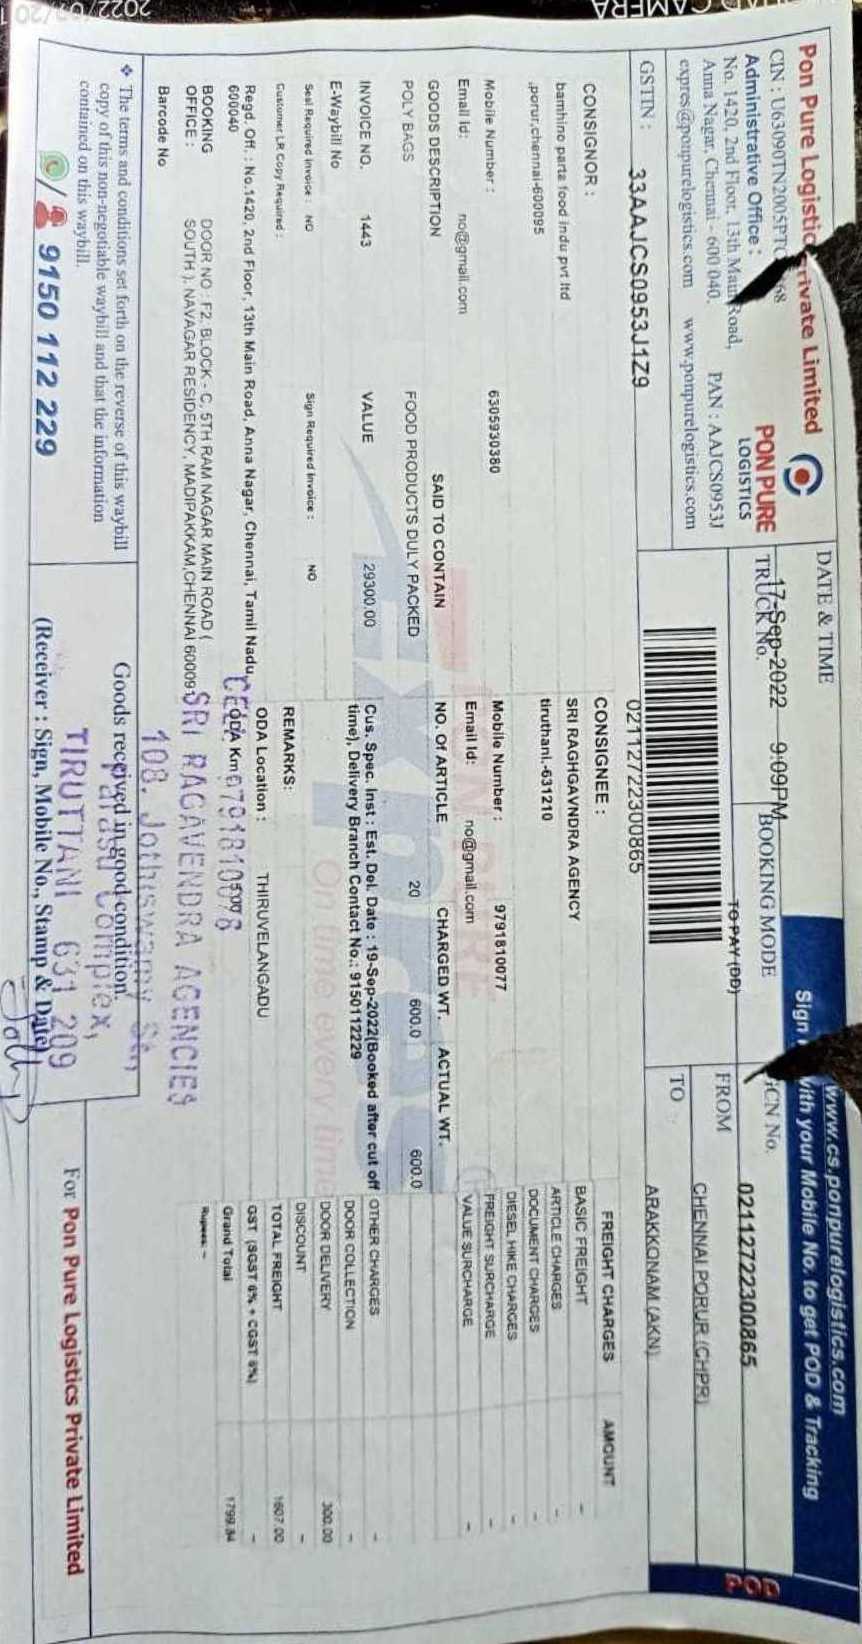 Pon Pure Logistic rivate Limited
CIN : U63090TN2005PTC 768
Administrative Office :
No. 1420, 2nd Floor, 13th Main Road,
Anna Nagar, Chennai - 600 040. PAN : AAJCS0953J
expres@ponpurelogistics.com www.ponpurelogistics.com
PON PURE
LOGISTICS
GSTIN : 33AAJCS0953J1Z9
DATE & TIME
17-Sep-2022 9:09PM
TRUCK No.
BOOKING MODE
TO PAY (DD)
www.cs.ponpurelogistics.com
Sign with your Mobile No. to get POD & Tracking
GCN No. 02112722300865
FROM CHENNAI PORUR (CHPR)
TO ARAKKONAM (AKN)
POD
02112722300865
CONSIGNOR :
bambino parta food indu pvt ltd
,porur,chennai-600095
Mobile Number : 6305930380
Email Id: no@gmail.com
CONSIGNEE :
SRI RAGHGAVNDRA AGENCY
tiruthani.-631210
Mobile Number : 9791810077
Email Id: no@gmail.com
GOODS DESCRIPTION SAID TO CONTAIN NO. Of ARTICLE CHARGED WT. ACTUAL WT.
POLY BAGS FOOD PRODUCTS DULY PACKED 20 600.0 600.0
INVOICE NO. 1443 VALUE 29300.00
E-Waybill No
Seal Required Invoice : NO Sign Required Invoice : NO
Customer LR Copy Required :
Cus. Spec. Inst : Est. Del. Date : 19-Sep-2022(Booked after cut off
time), Delivery Branch Contact No.: 9150112229
REMARKS:
ODA Location : THIRUVELANGADU
ODA Km
Regd. Off. : No.1420, 2nd Floor, 13th Main Road, Anna Nagar, Chennai, Tamil Nadu,
600040
BOOKING OFFICE : DOOR NO : F2, BLOCK - C, 5TH RAM NAGAR MAIN ROAD (
SOUTH ), NAVAGAR RESIDENCY, MADIPAKKAM,CHENNAI 60009
Barcode No
FREIGHT CHARGES AMOUNT
BASIC FREIGHT -
ARTICLE CHARGES -
DOCUMENT CHARGES -
DIESEL HIKE CHARGES -
FREIGHT SURCHARGE -
VALUE SURCHARGE -
OTHER CHARGES -
DOOR COLLECTION -
DOOR DELIVERY 300.00
DISCOUNT -
TOTAL FREIGHT 1607.00
GST (SGST 6% + CGST 6%) -
Grand Total 1799.84
Rupees: --
Express
On time every time
CELL
SRI RAGAVENDRA AGENCIES
108, Jothiswamy
Complex,
TIRUTTANI 631 209
Goods received in good condition.
(Receiver : Sign, Mobile No., Stamp & Date)
❖ The terms and conditions set forth on the reverse of this waybill
copy of this non-negotiable waybill and that the information
contained on this waybill.
/ 9150 112 229
For Pon Pure Logistics Private Limited